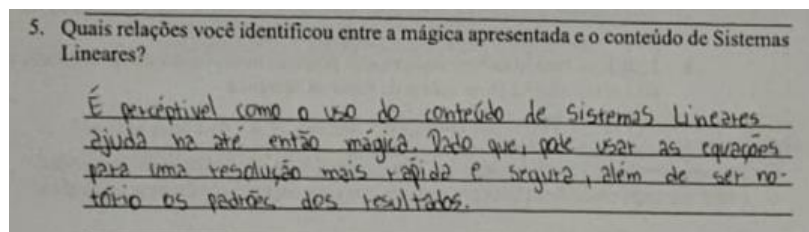 5. Quais relações você identificou entre a mágica apresentada e o conteúdo de Sistemas
Lineares?
É percéptivel como o uso do conteúdo de Sistemas Lineares
ajuda na até então mágica. Dado que, pode usar as equações
para uma resolução mais rápida e segura, além de ser no-
tório os padrões dos resultados.